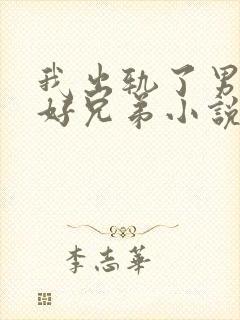 我出轨了男
好兄弟小說
李志華